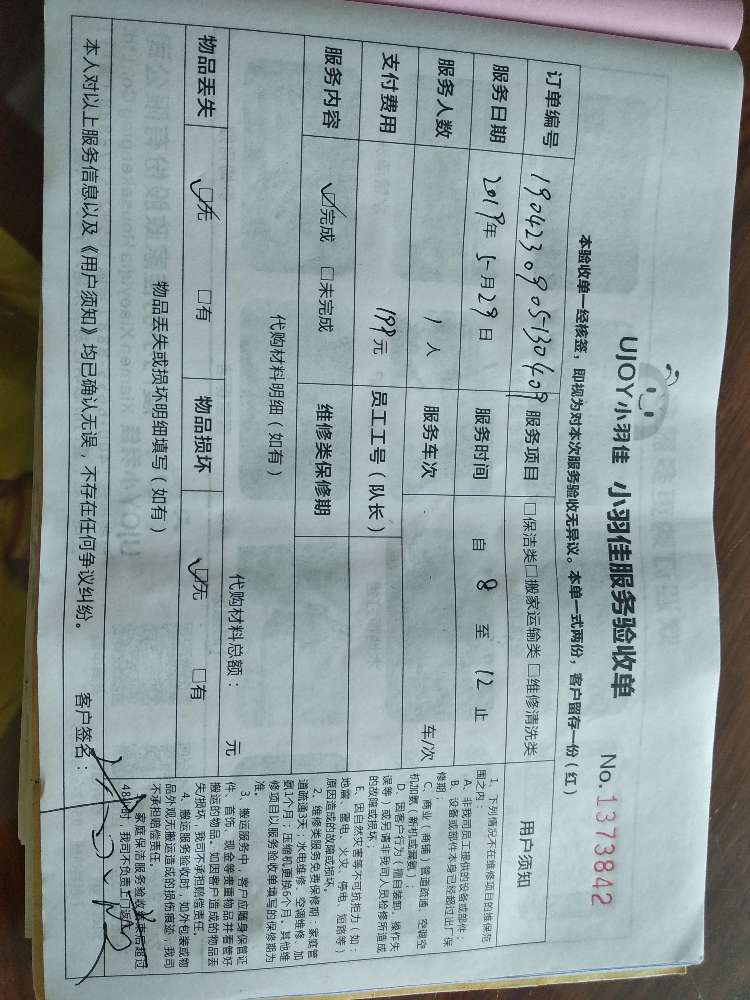 UJOY小羽佳 小羽佳服务验收单 No.1373842
本验收单一经核签，即视为对本次服务验收无异议。本单一式两份，客户留存一份（红）
订单编号 1904230905130409 服务项目 □保洁类□搬家运输类□维修清洗类
服务日期 2019年5月29日 服务时间 自 8 至 12 止
服务人数 1人 服务车次 车/次
支付费用 199元 员工工号（队长）
服务内容 ☑完成 □未完成 维修类保修期
代购材料明细（如有）
代购材料总额： 元
物品丢失 ☑无 □有 物品损坏 ☑无 □有
物品丢失或损坏明细填写（如有）
本人对以上服务信息以及《用户须知》均已确认无误，不存在任何争议纠纷。 客户签名：
用户须知
1、下列情况不在维修项目的维保范
围之内：
A、非我司员工提供的设备或部件；
B、设备或部件本身已经超过出厂保
修期；
C、商业（商铺）管道疏通、空调空
机加氨（新机或漏氨）；
D、因客户行为（擅自装卸、操作失
误等）或另请非我司人员检修所造成
的故障或损坏；
E、因自然灾害等不可抗拒力（如：
地震、雷电、火灾、停电、短路等）
原因造成的故障或损坏。
2、维修类服务免费保修期：家庭管
道疏通3天；水电维修、空调维修、加
氨1个月；压缩机更换6个月。其他维
修项目以服务验收单填写的保修期为
准。
3、搬运服务中，客户应随身保管证
件、首饰、现金等贵重物品并看管好
搬运的物品。如因客户造成的物品丢
失/损坏，我司不承担赔偿责任。
4、搬运服务验收时，如外包装或物
品外观无搬运造成的损伤痕迹，我司
不承担赔偿责任。
家庭保洁服务验收结束后超过
48小时，我司不负责上门返工